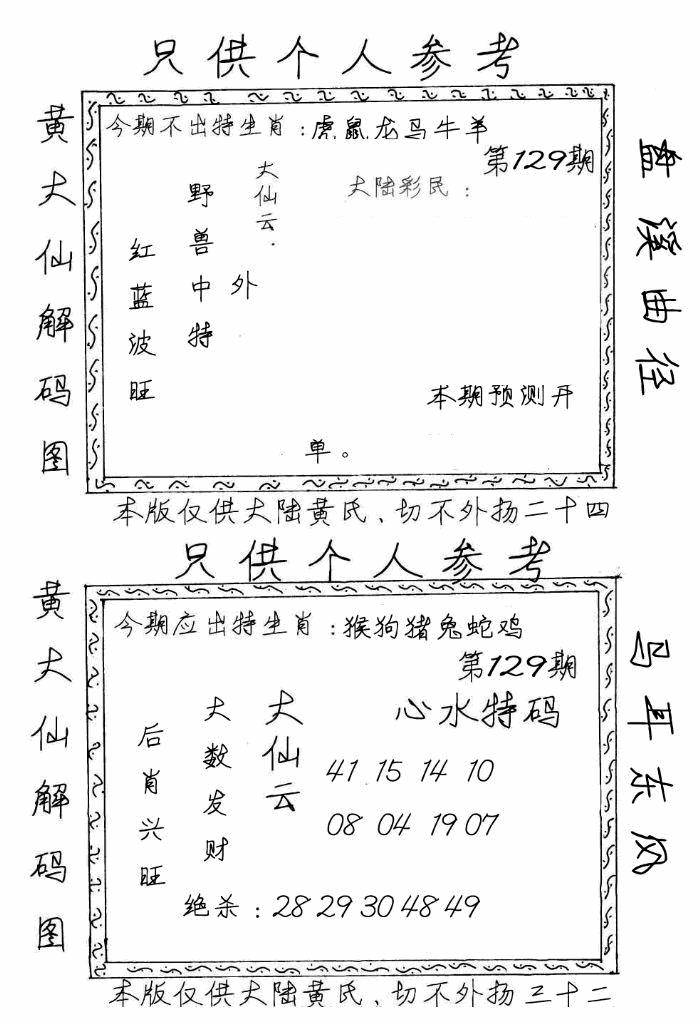 只供个人参考
黄大仙解码图
今期不出特生肖：虎鼠龙马牛羊
第129期
大陆彩民：
大仙云：
外
野兽中特
红蓝波旺
本期预测开
单。
盘溪曲径
本版仅供大陆黄氏、切不外扬二十四
只供个人参考
黄大仙解码图
今期应出特生肖：猴狗猪兔蛇鸡
第129期
心水特码
大仙云
大数发财
后肖兴旺
41 15 14 10
08 04 19 07
绝杀：28 29 30 48 49
马耳东风
本版仅供大陆黄氏、切不外扬三十二